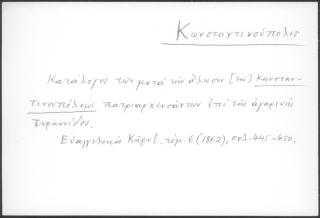 Κωνσταντινούπολις
Κατάλογος τῶν μετὰ τὴν ἅλωσιν [τῆς] Κωνσταν-
τινουπόλεως πατριαρχευσάντων ἐπὶ τῆς ἀγαρινῆς
τυραννίδος.
Εὐαγγελικὸς Κῆρυξ, τόμ. 6 (1862), σελ. 445-450.